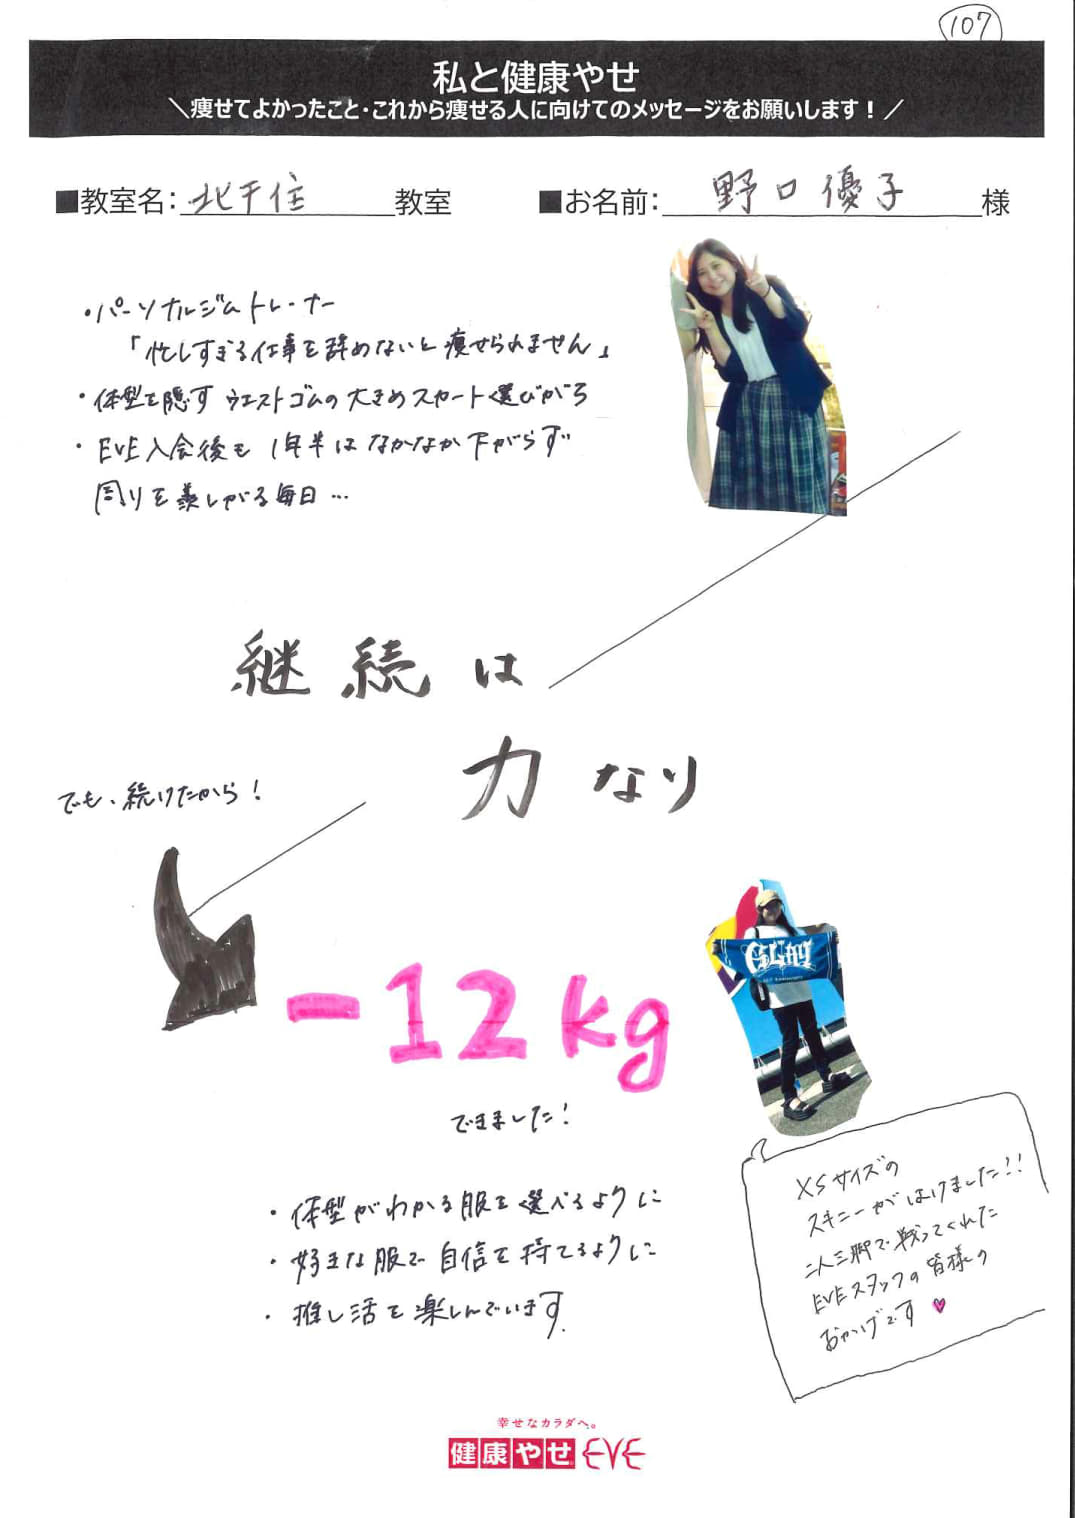 107
私と健康やせ
＼痩せてよかったこと・これから痩せる人に向けてのメッセージをお願いします！／
■教室名：北千住教室 ■お名前：野口優子様
・パーソナルジムトレーナー
「忙しすぎる仕事を辞めないと痩せられません」
・体型を隠すウエストゴムの大きめスカート選びがち
・EVE入会後も1年半はなかなか下がらず
周りを羨しがる毎日…
継続は
力なり
でも、続けたから！
-12kg
GLAY
できました！
・体型がわかる服を選べるように
・好きな服で自信を持てるように
・推し活を楽しんでいます。
XSサイズの
スキニーがはけました!!
二人三脚で戦ってくれた
EVEスタッフの皆様の
おかげです♥
幸せなカラダへ。
健康やせEVE